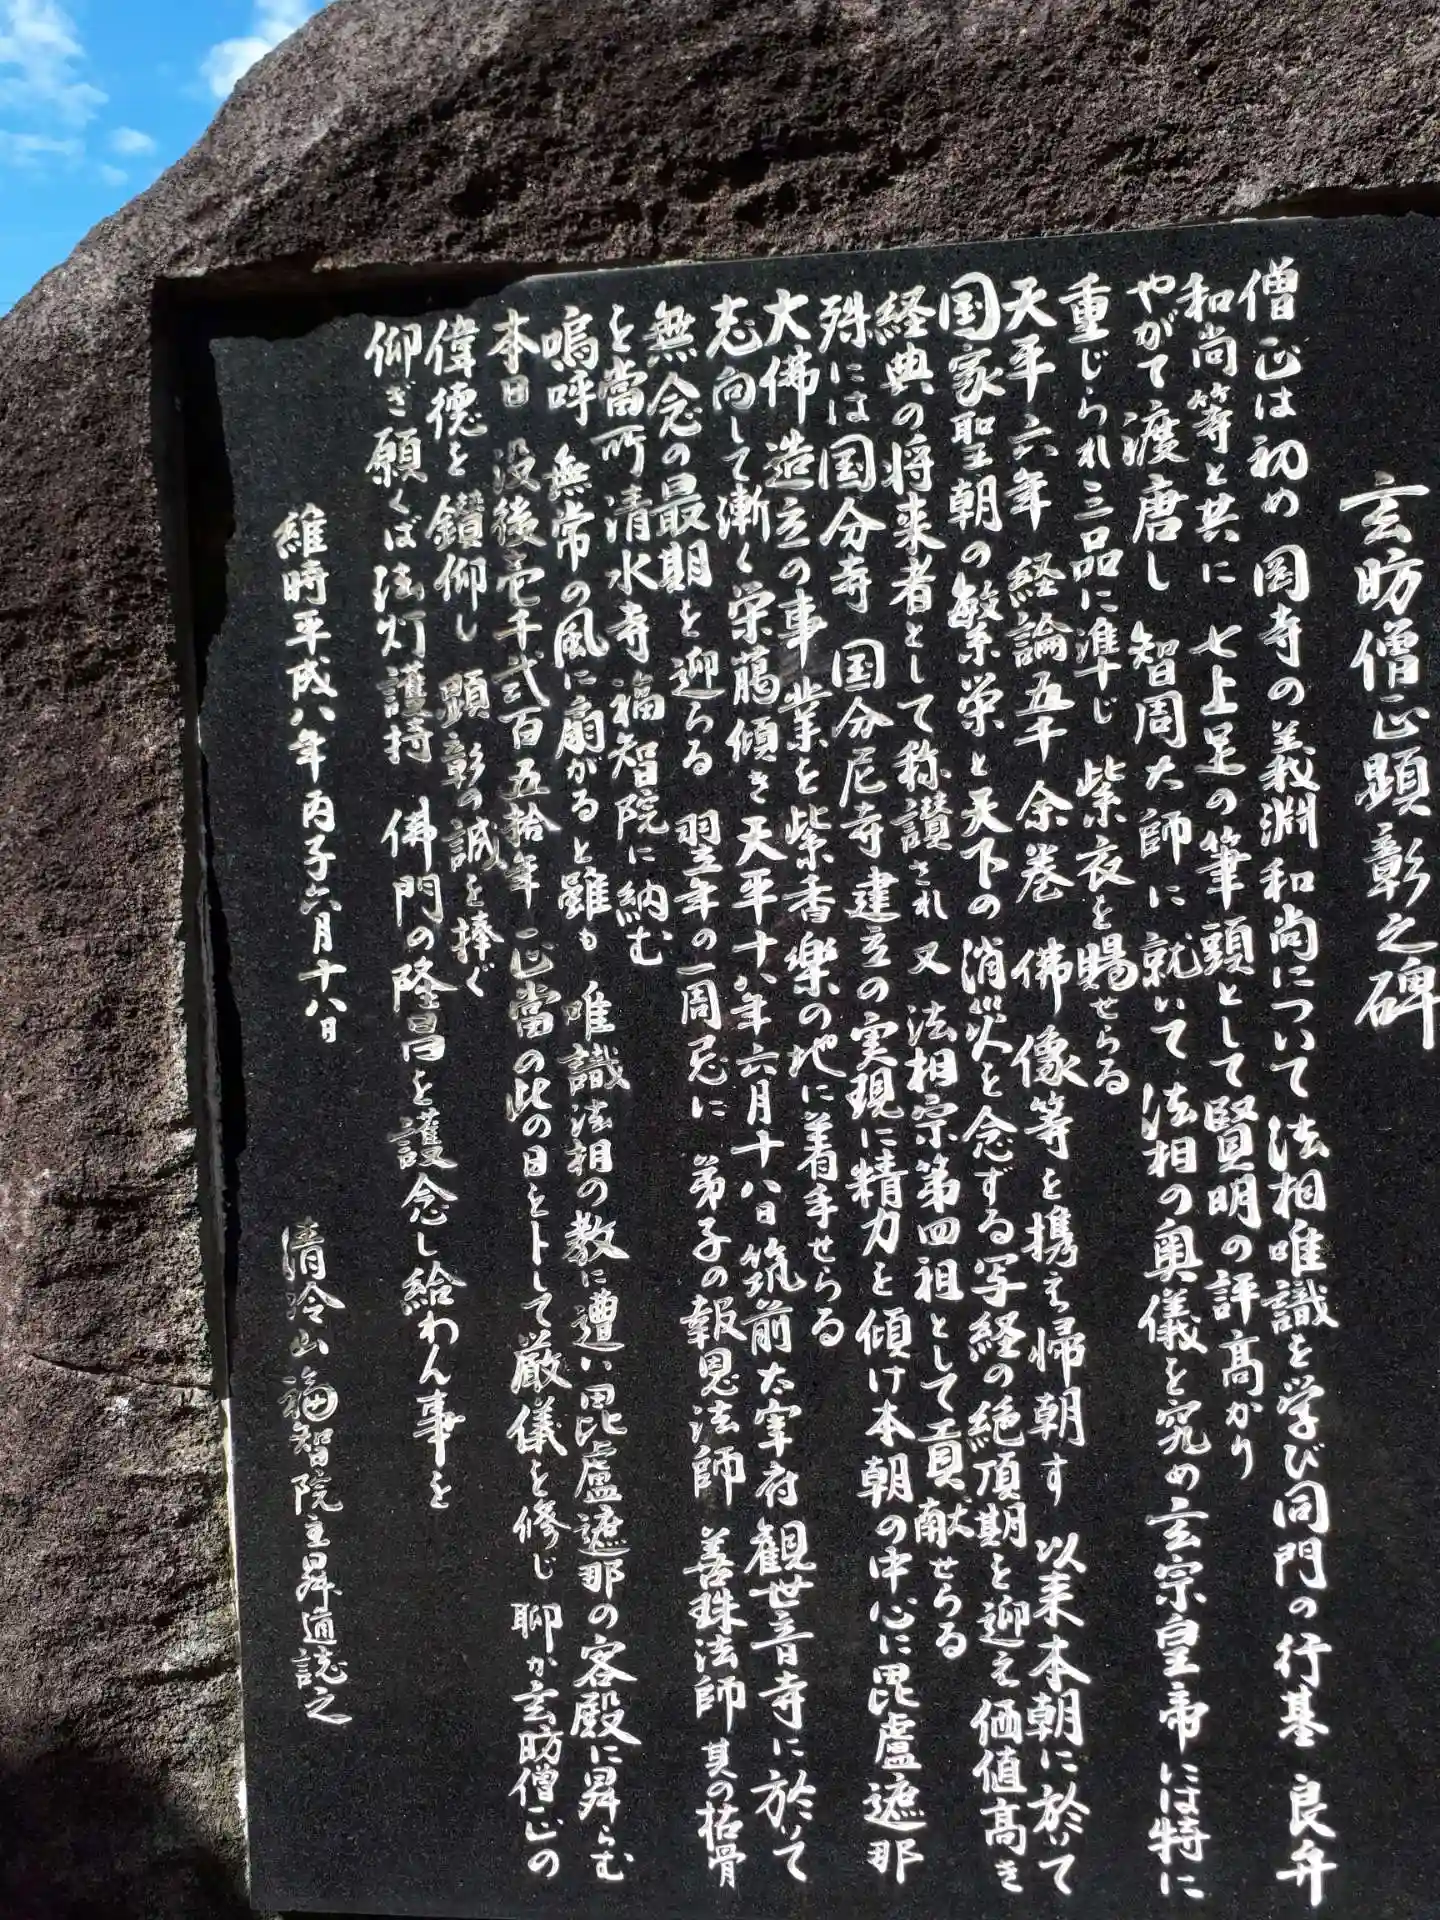 玄昉僧正顕彰之碑
僧正は初め 岡寺の義淵和尚について法相唯識を学び同門の行基 良弁
和尚等と共に 七上足の筆頭として賢明の評高かり
やがて渡唐し 智周大師に就いて法相の奥儀を究め玄宗皇帝には特に
重じられ三品に準じ 紫衣を賜せらる
天平六年 経論五千余巻 佛像等を携え帰朝す 以来本朝に於いて
国家聖朝の繁栄と天下の消災を念ずる写経の絶頂期を迎え価値高き
経典の将来者として称讃され 又 法相宗第四祖として貢献せらる
殊には国分寺 国分尼寺建立の実現に精力を傾け本朝の中心に毘盧遮那
大佛造立の事業を紫香楽の地に着手せらる
志向して漸く栄﨟傾き天平十八年六月十八日筑前太宰府観世音寺に於いて
無念の最期を迎らる 翌年の一周忌に 弟子の報恩法師 善珠法師 其の枯骨
を當所清水寺 福智院に納む
嗚呼 無常の風に扇がると雖も 唯識法相の教に遭い毘盧遮那の客殿に昇らむ
本日 没後壱千弐百五拾年 正當の此の日をトして厳儀を修じ 聊か玄昉僧正の
偉徳を鑚仰し 顕彰の誠を捧ぐ
仰ぎ願くば法灯護持 佛門の隆昌を護念し給わん事を
維時平成八年丙子六月十八日 清冷山福智院主昇適誌之